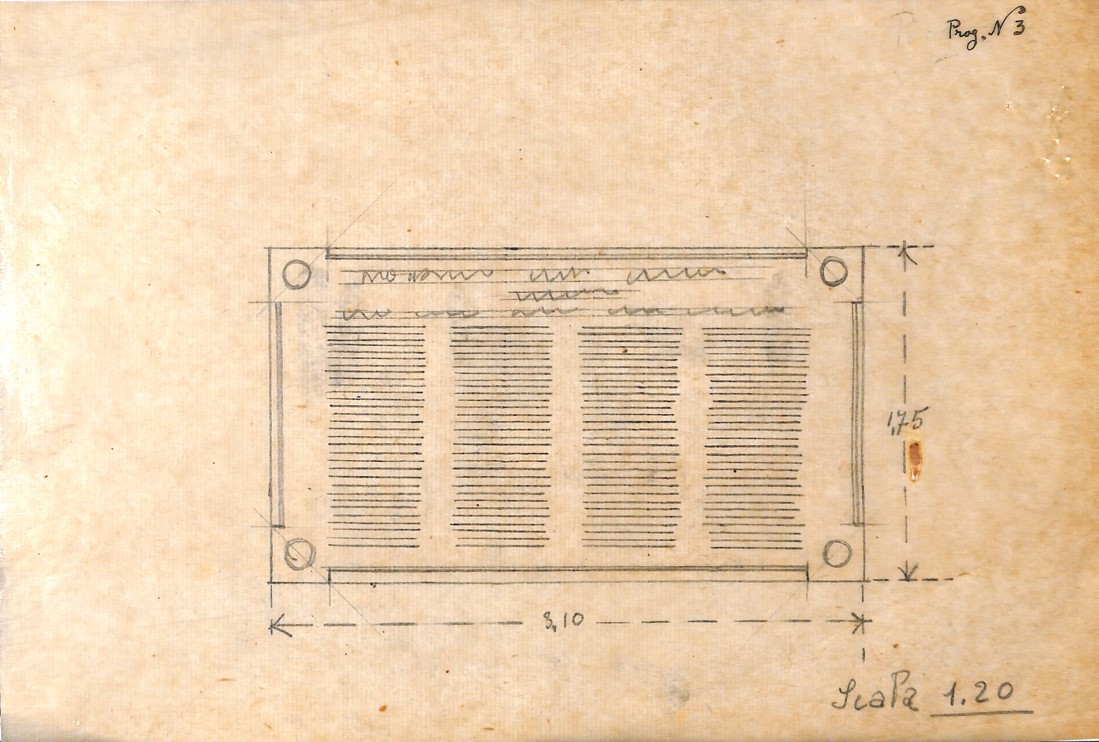 Prog. N 3
1,75
3,10
Scala 1.20